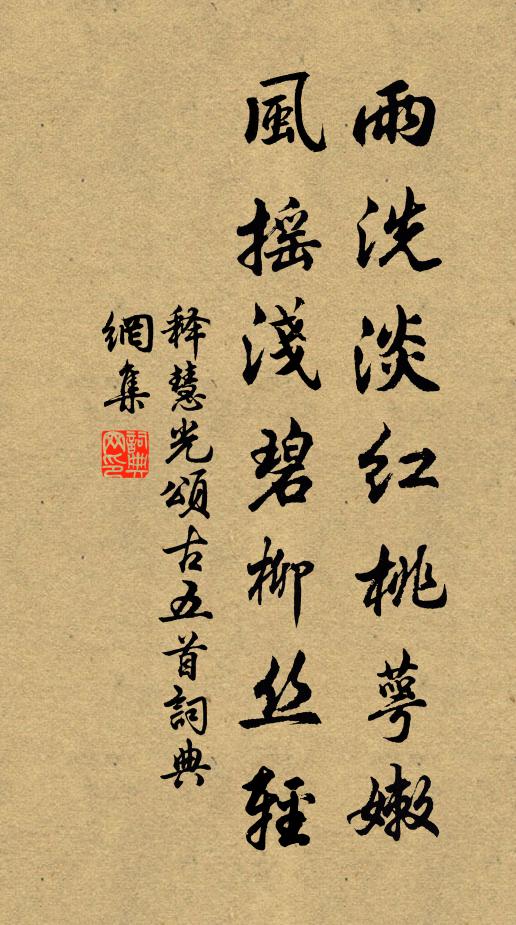 雨洗淡红桃萼嫩
風摇淺碧柳丝輕
释慧光頌古五首詞典
網集
詞典
网印